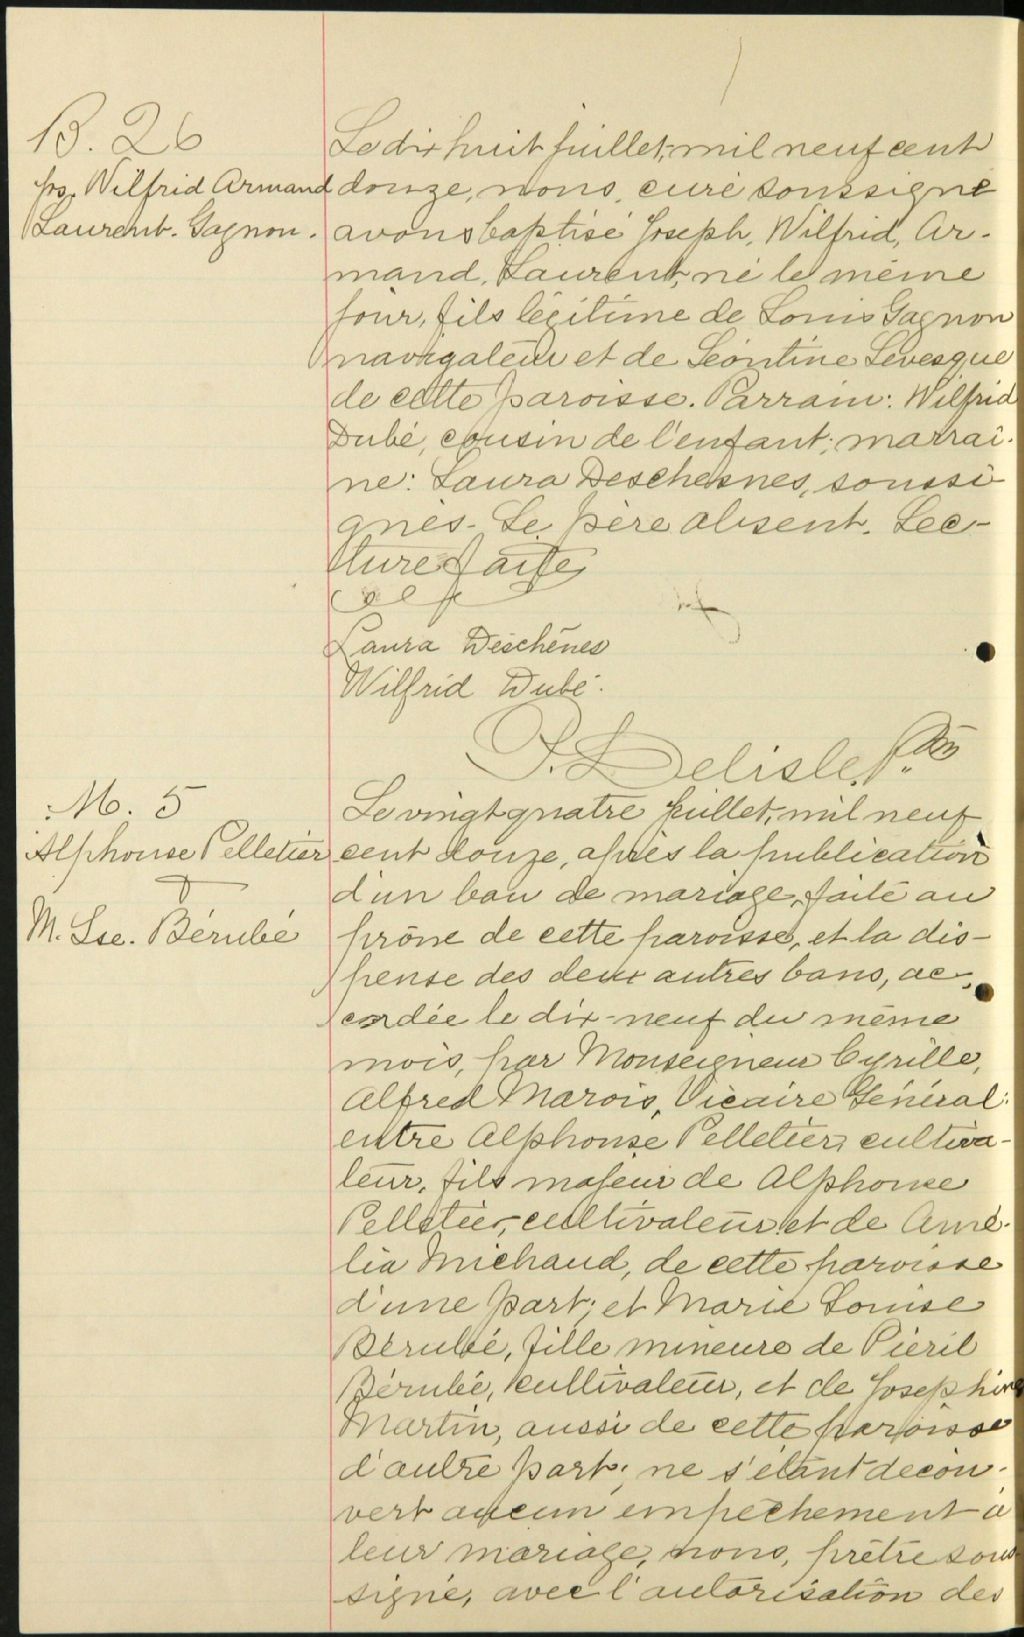 B. 26
Jos. Wilfrid Armand
Laurent. Gagnon.
Le dix huit juillet, mil neuf cent
douze, nous, curé soussigné
avons baptisé Joseph, Wilfrid, Ar-
mand, Laurent, né le même
jour, fils légitime de Louis Gagnon
navigateur et de Léontine Levesque
de cette paroisse. Parrain: Wilfrid
Dubé, cousin de l'enfant; marrai-
ne: Laura Deschesnes, soussi-
gnés. Le père absent. Lec-
ture faite
Laura Deschênes
Wilfrid Dubé.
P. Delisle, Ptre
M. 5
Alphonse Pelletier
&
M. Lse. Bérubé
Le vingt quatre juillet, mil neuf
cent douze, après la publication
d'un ban de mariage, faite au
prône de cette paroisse, et la dis-
pense des deux autres bans, ac-
cordée le dix-neuf du même
mois, par Monseigneur Cyrille,
Alfred Marois, Vicaire Général:
entre Alphonse Pelletier, cultiva-
teur, fils majeur de Alphonse
Pelletier, cultivateur et de Amé-
lia Michaud, de cette paroisse
d'une part; et Marie Louise
Bérubé, fille mineure de Pieril
Bérubé, cultivateur, et de Josephine
Martin, aussi de cette paroisse
d'autre part; ne s'étant décou-
vert aucun empêchement à
leur mariage, nous, prêtre sous-
signé, avec l'autorisation des